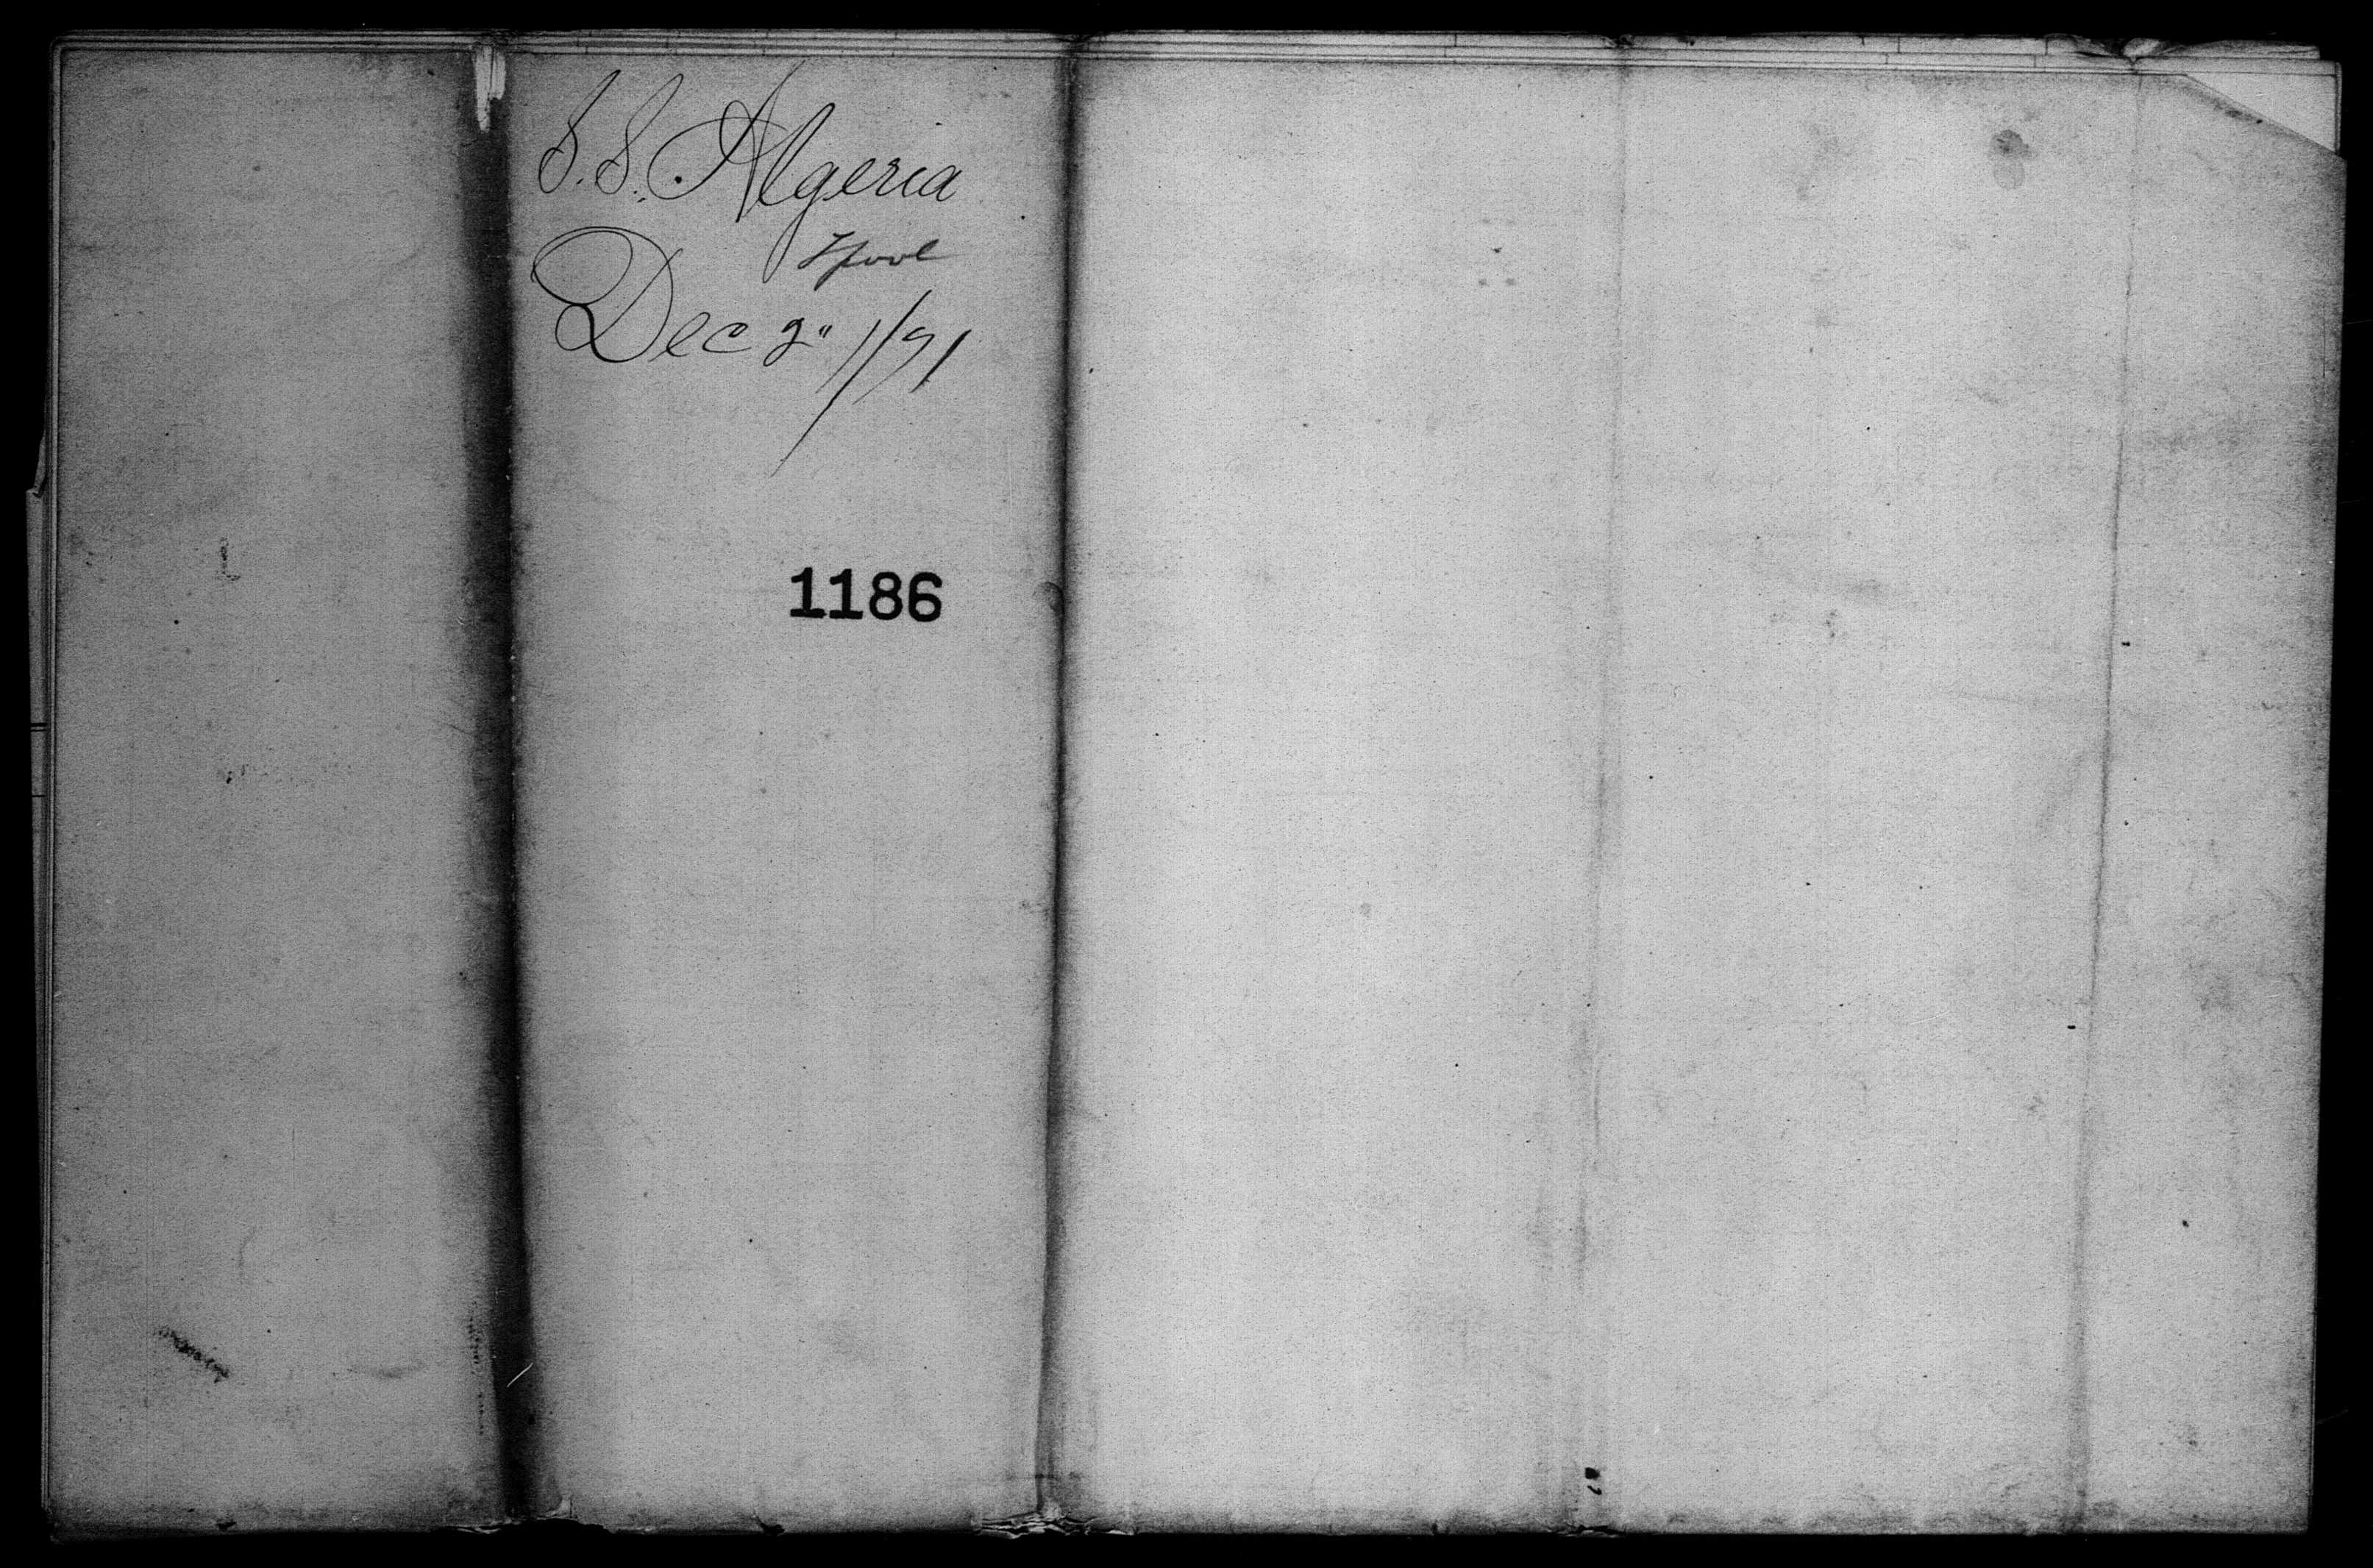 S.S. Algeria
Lpool
Dec 2" /71
1186